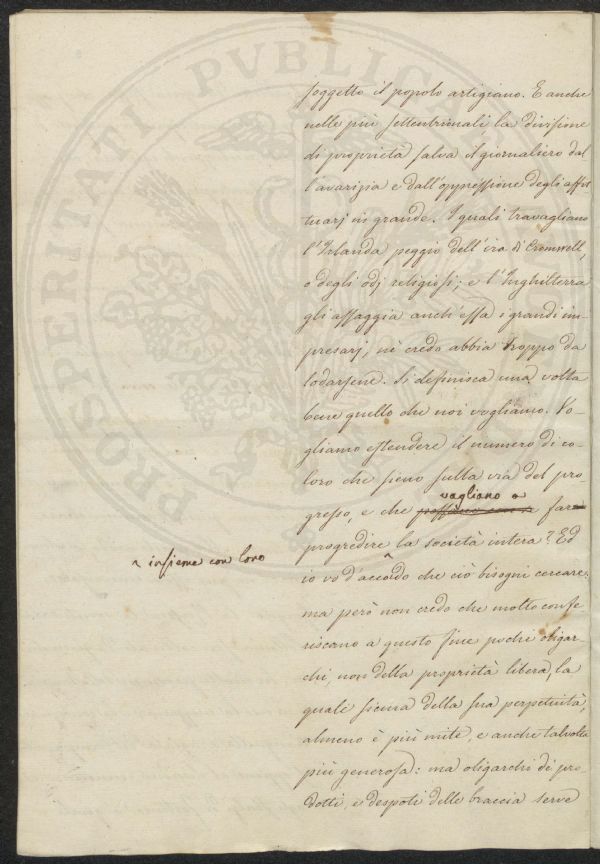 PROSPERITATI PVBLICAE
soggetto il popolo artigiano. E anche
nelle più settentrionali, la divisione
di proprietà salva il giornaliero dal
l'avarizia e dall'oppressione degli affit
tuarj in grande. I quali travagliano
l'Irlanda peggio dell'ira di Cromwell,
o degli odj religiosi; e l'Inghilterra
gli assaggia anch'essa i grandi im-
presarj, nè credo abbia troppo da
lodarsene. Si definisca una volta
bene quello che noi vogliamo. Vo-
gliamo estendere il numero di co-
loro che sieno sulla via del pro-
vagliano a
gresso, e che far
progredire la società intera? Ed
^ insieme con loro
io vo d'accordo che ciò bisogni cercare:
ma però non credo che molto confe
riscano a questo fine pochi oligar
chi, non della proprietà libera, la
quale sicura della sua perpetuità,
almeno è più mite, e anche talvolta
più generosa: ma oligarchi di pro-
dotti, e despoti delle braccia serve